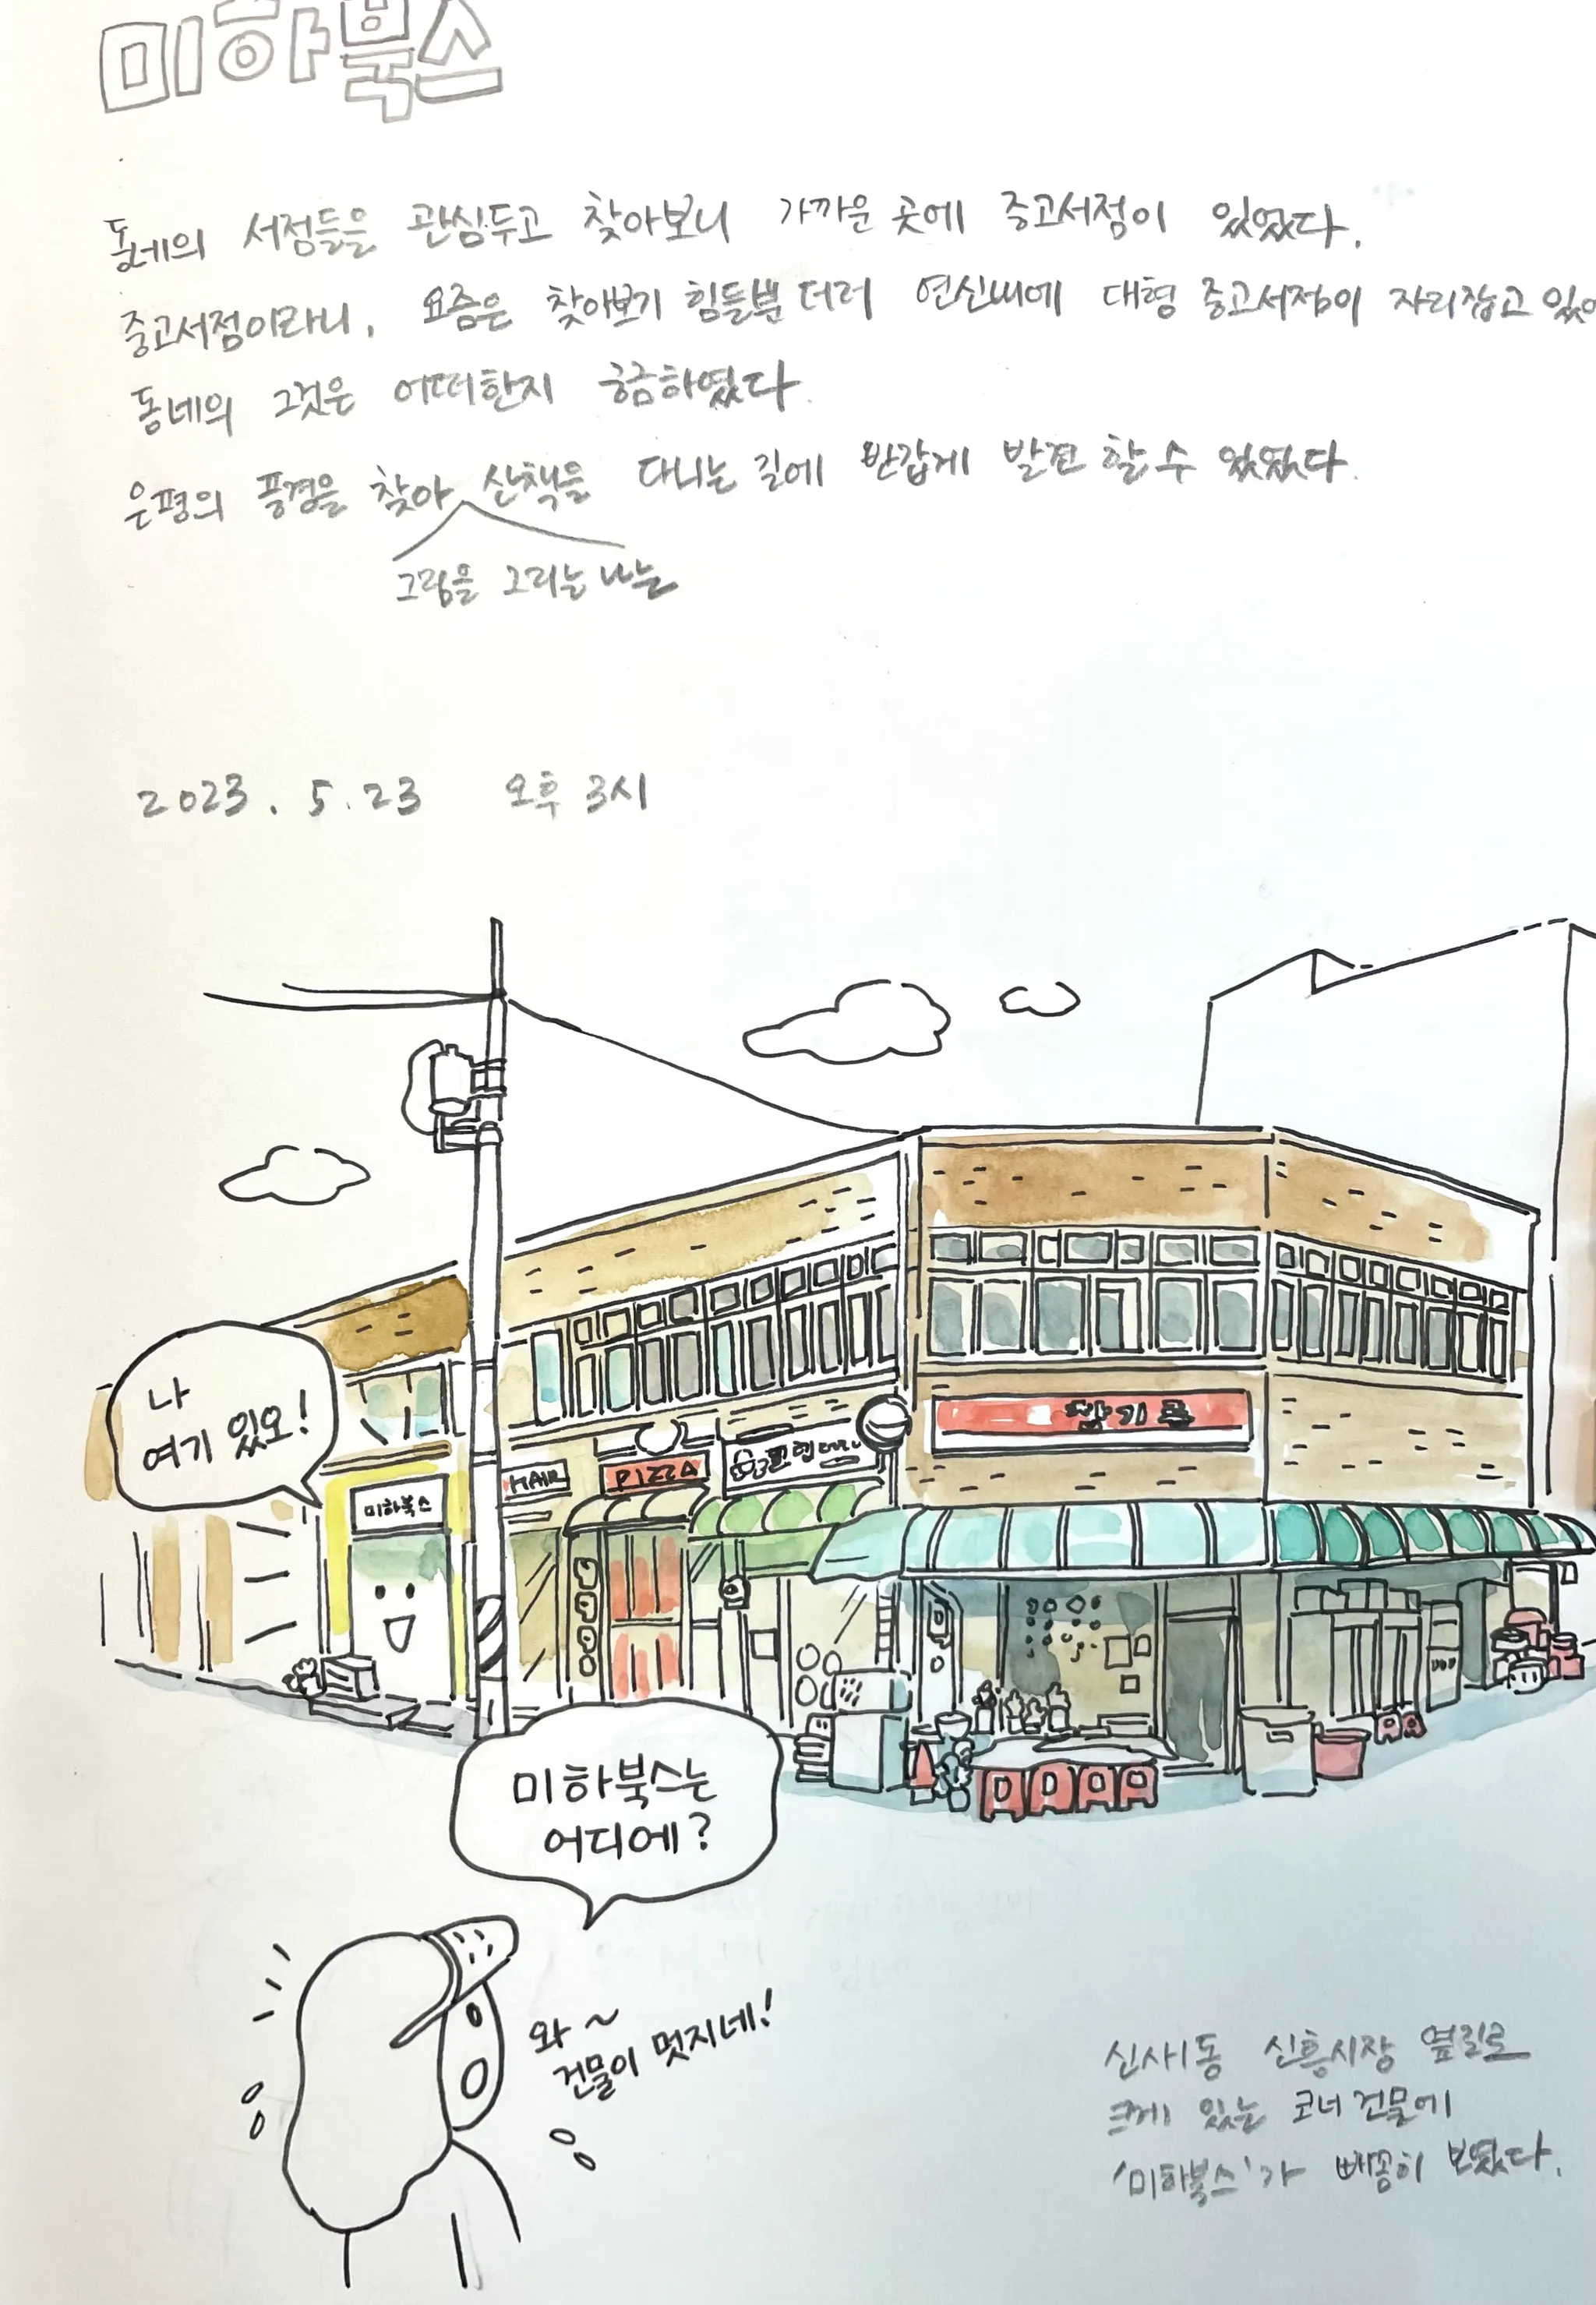 미하북스
동네의 서점들을 관심두고 찾아보니 가까운 곳에 중고서점이 있었다.
중고서점이라니, 요즘은 찾아보기 힘들뿐더러 연신내에 대형 중고서점이 자리잡고 있
동네의 그것은 어떠한지 궁금하였다.
은평의 풍경을 찾아 산책을 다니는 길에 반갑게 발견 할 수 있었다.
그림을 그리는 나는
2023. 5. 23 오후 3시
나
여기 있오!
미하북스
HAIR
PIZZA
미하북스는
어디에?
와~
건물이 멋지네!
신사1동 신흥시장 옆길로
크게 있는 코너 건물에
'미하북스'가 빼꼼히 보였다.